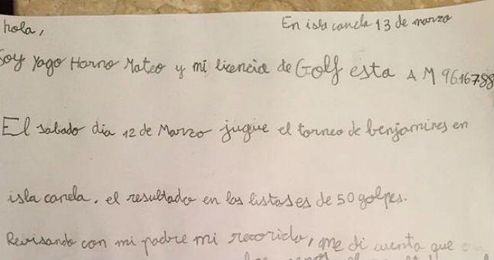 En isla canela 13 de marzo
hola,
Soy Yago Horno Mateo y mi licencia de Golf esta AM 9616788
El sabado dia 12 de Marzo jugue el torneo de benjamines en
isla canela. el resultado en las listas es de 50 golpes.
Revisando con mi padre mi recorrido, me di cuenta que